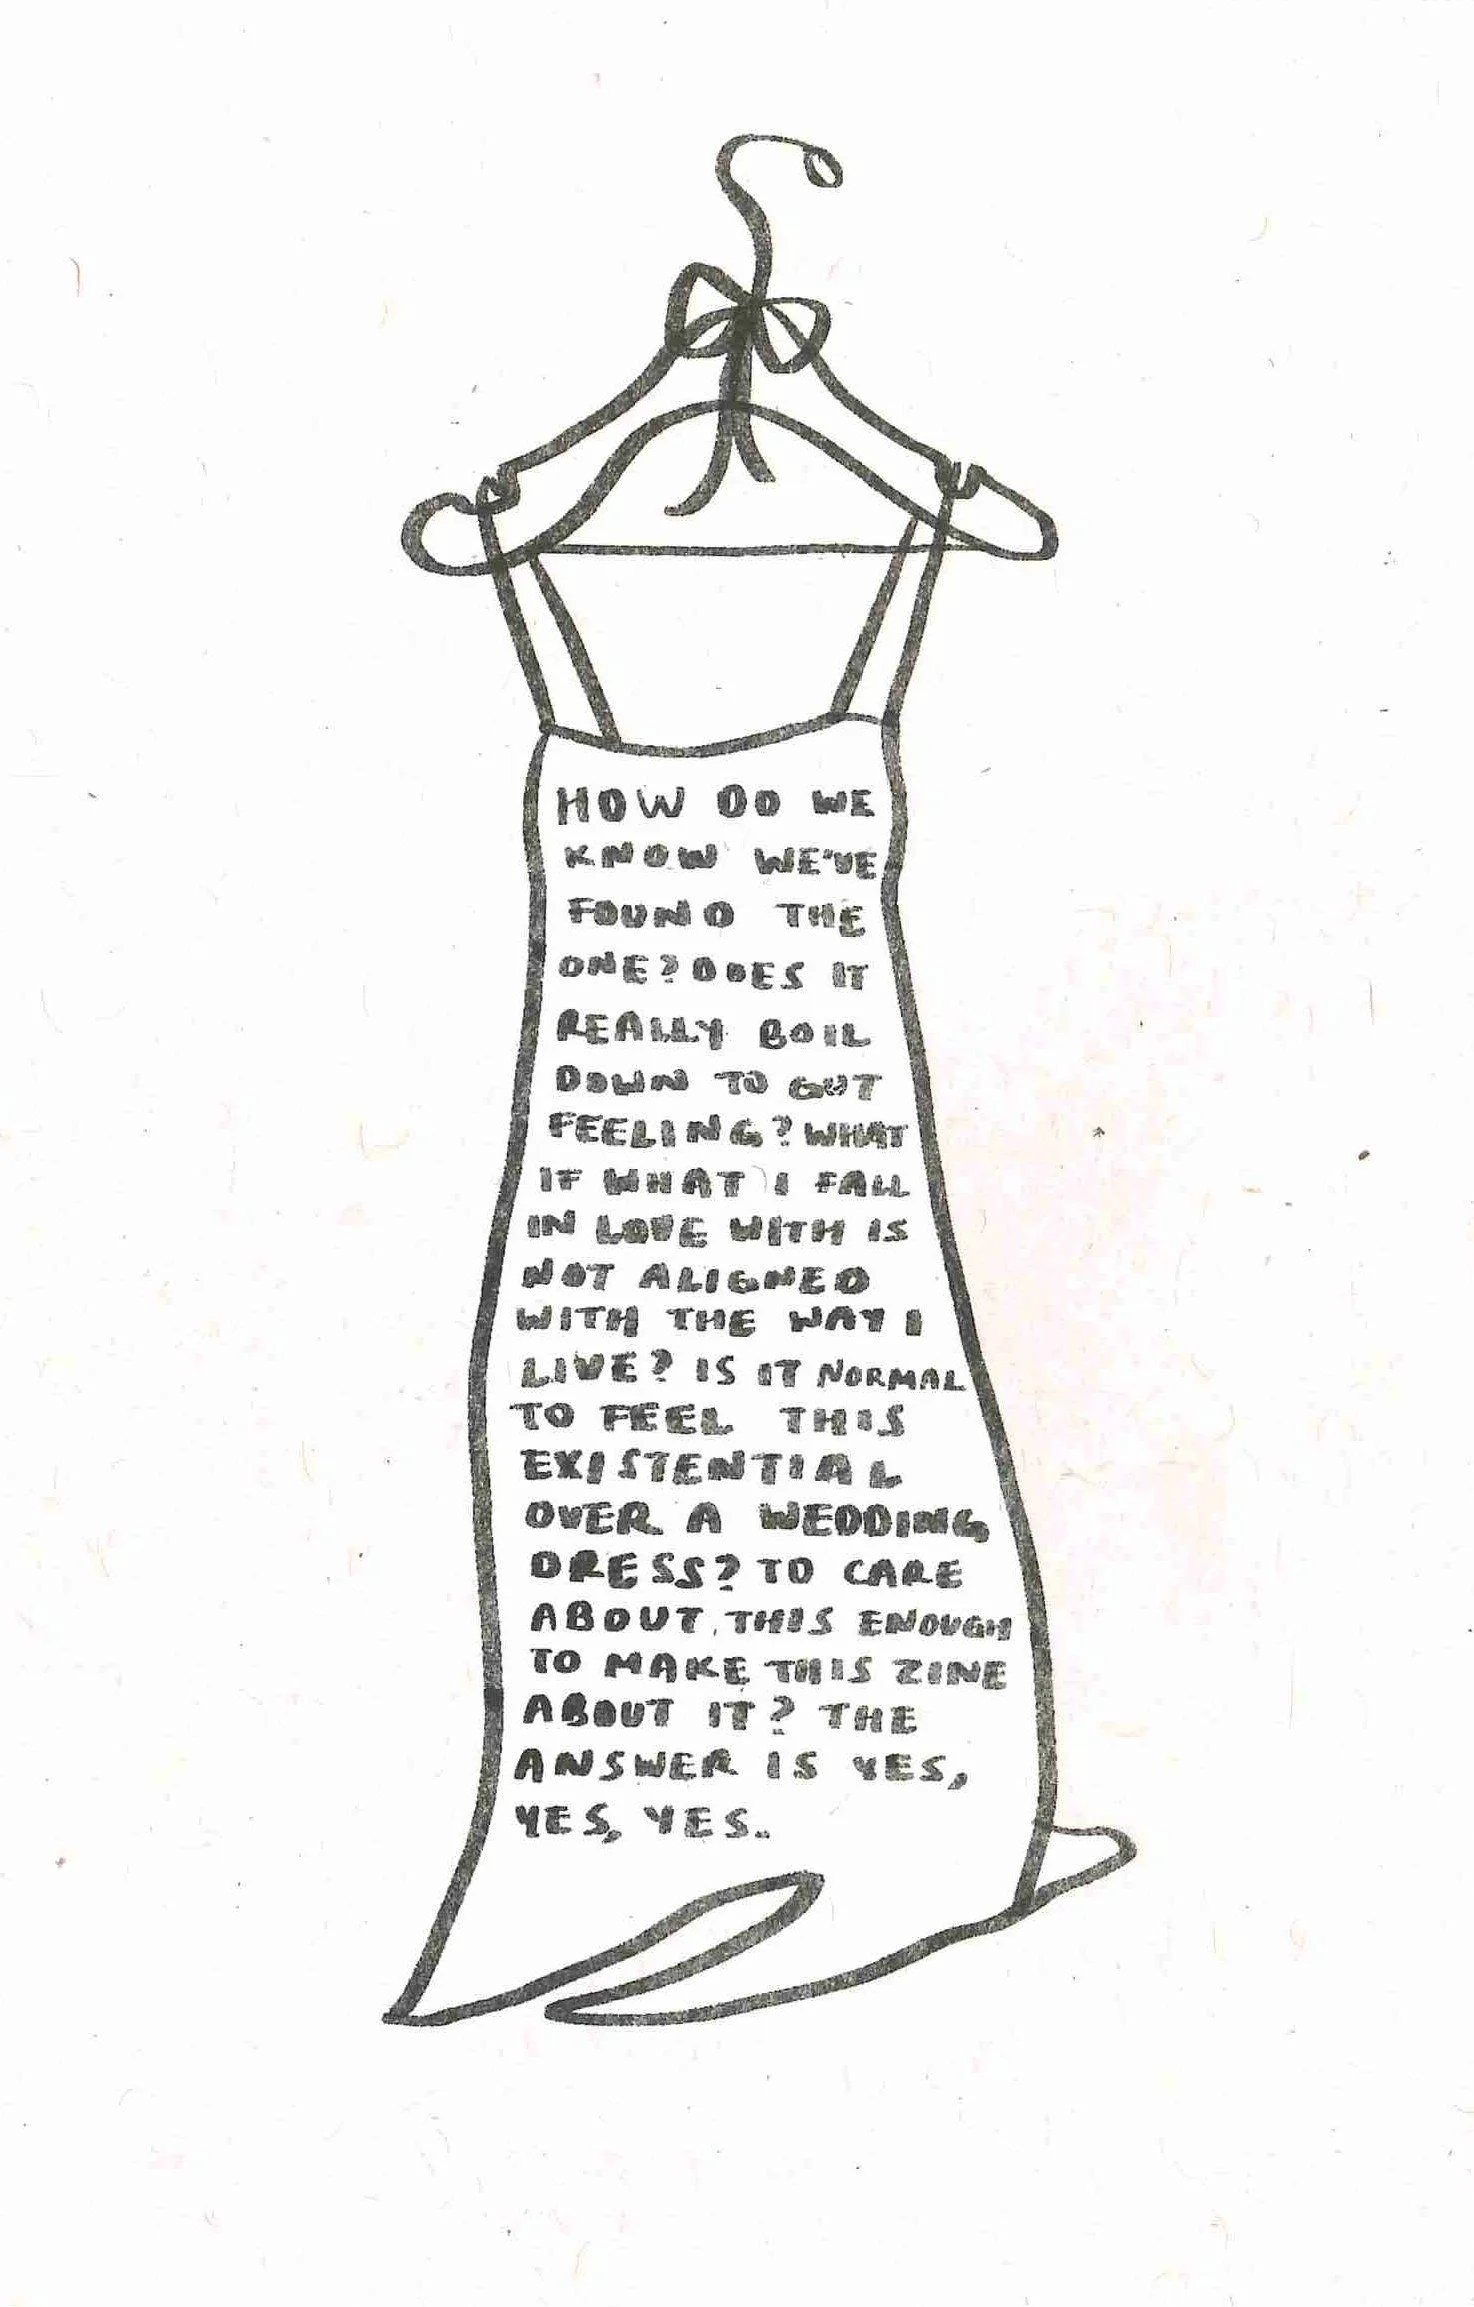 HOW DO WE
KNOW WE'VE
FOUND THE
ONE? DOES IT
REALLY BOIL
DOWN TO GUT
FEELING? WHAT
IF WHAT I FALL
IN LOVE WITH IS
NOT ALIGNED
WITH THE WAY I
LIVE? IS IT NORMAL
TO FEEL THIS
EXISTENTIAL
OVER A WEDDING
DRESS? TO CARE
ABOUT THIS ENOUGH
TO MAKE THIS ZINE
ABOUT IT? THE
ANSWER IS YES,
YES, YES.